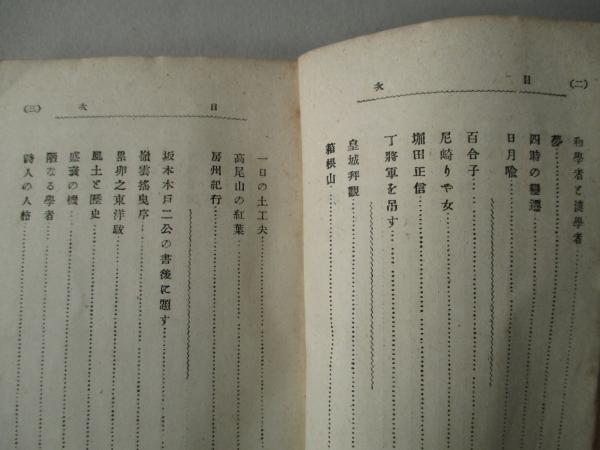 目次
(二)
和學者と漢學者
夢
四時の變遷
日月喩
百合子
尼崎りや女
堀田正信
丁將軍を吊す
皇城拜觀
箱根山
目次
(三)
一日の土工夫
高尾山の紅葉
房州紀行
坂本木戸二公の書後に題す
嶺雲搖曳序
累卵之東洋跋
風土と歴史
盛衰の機
陋なる學者
詩人の人格